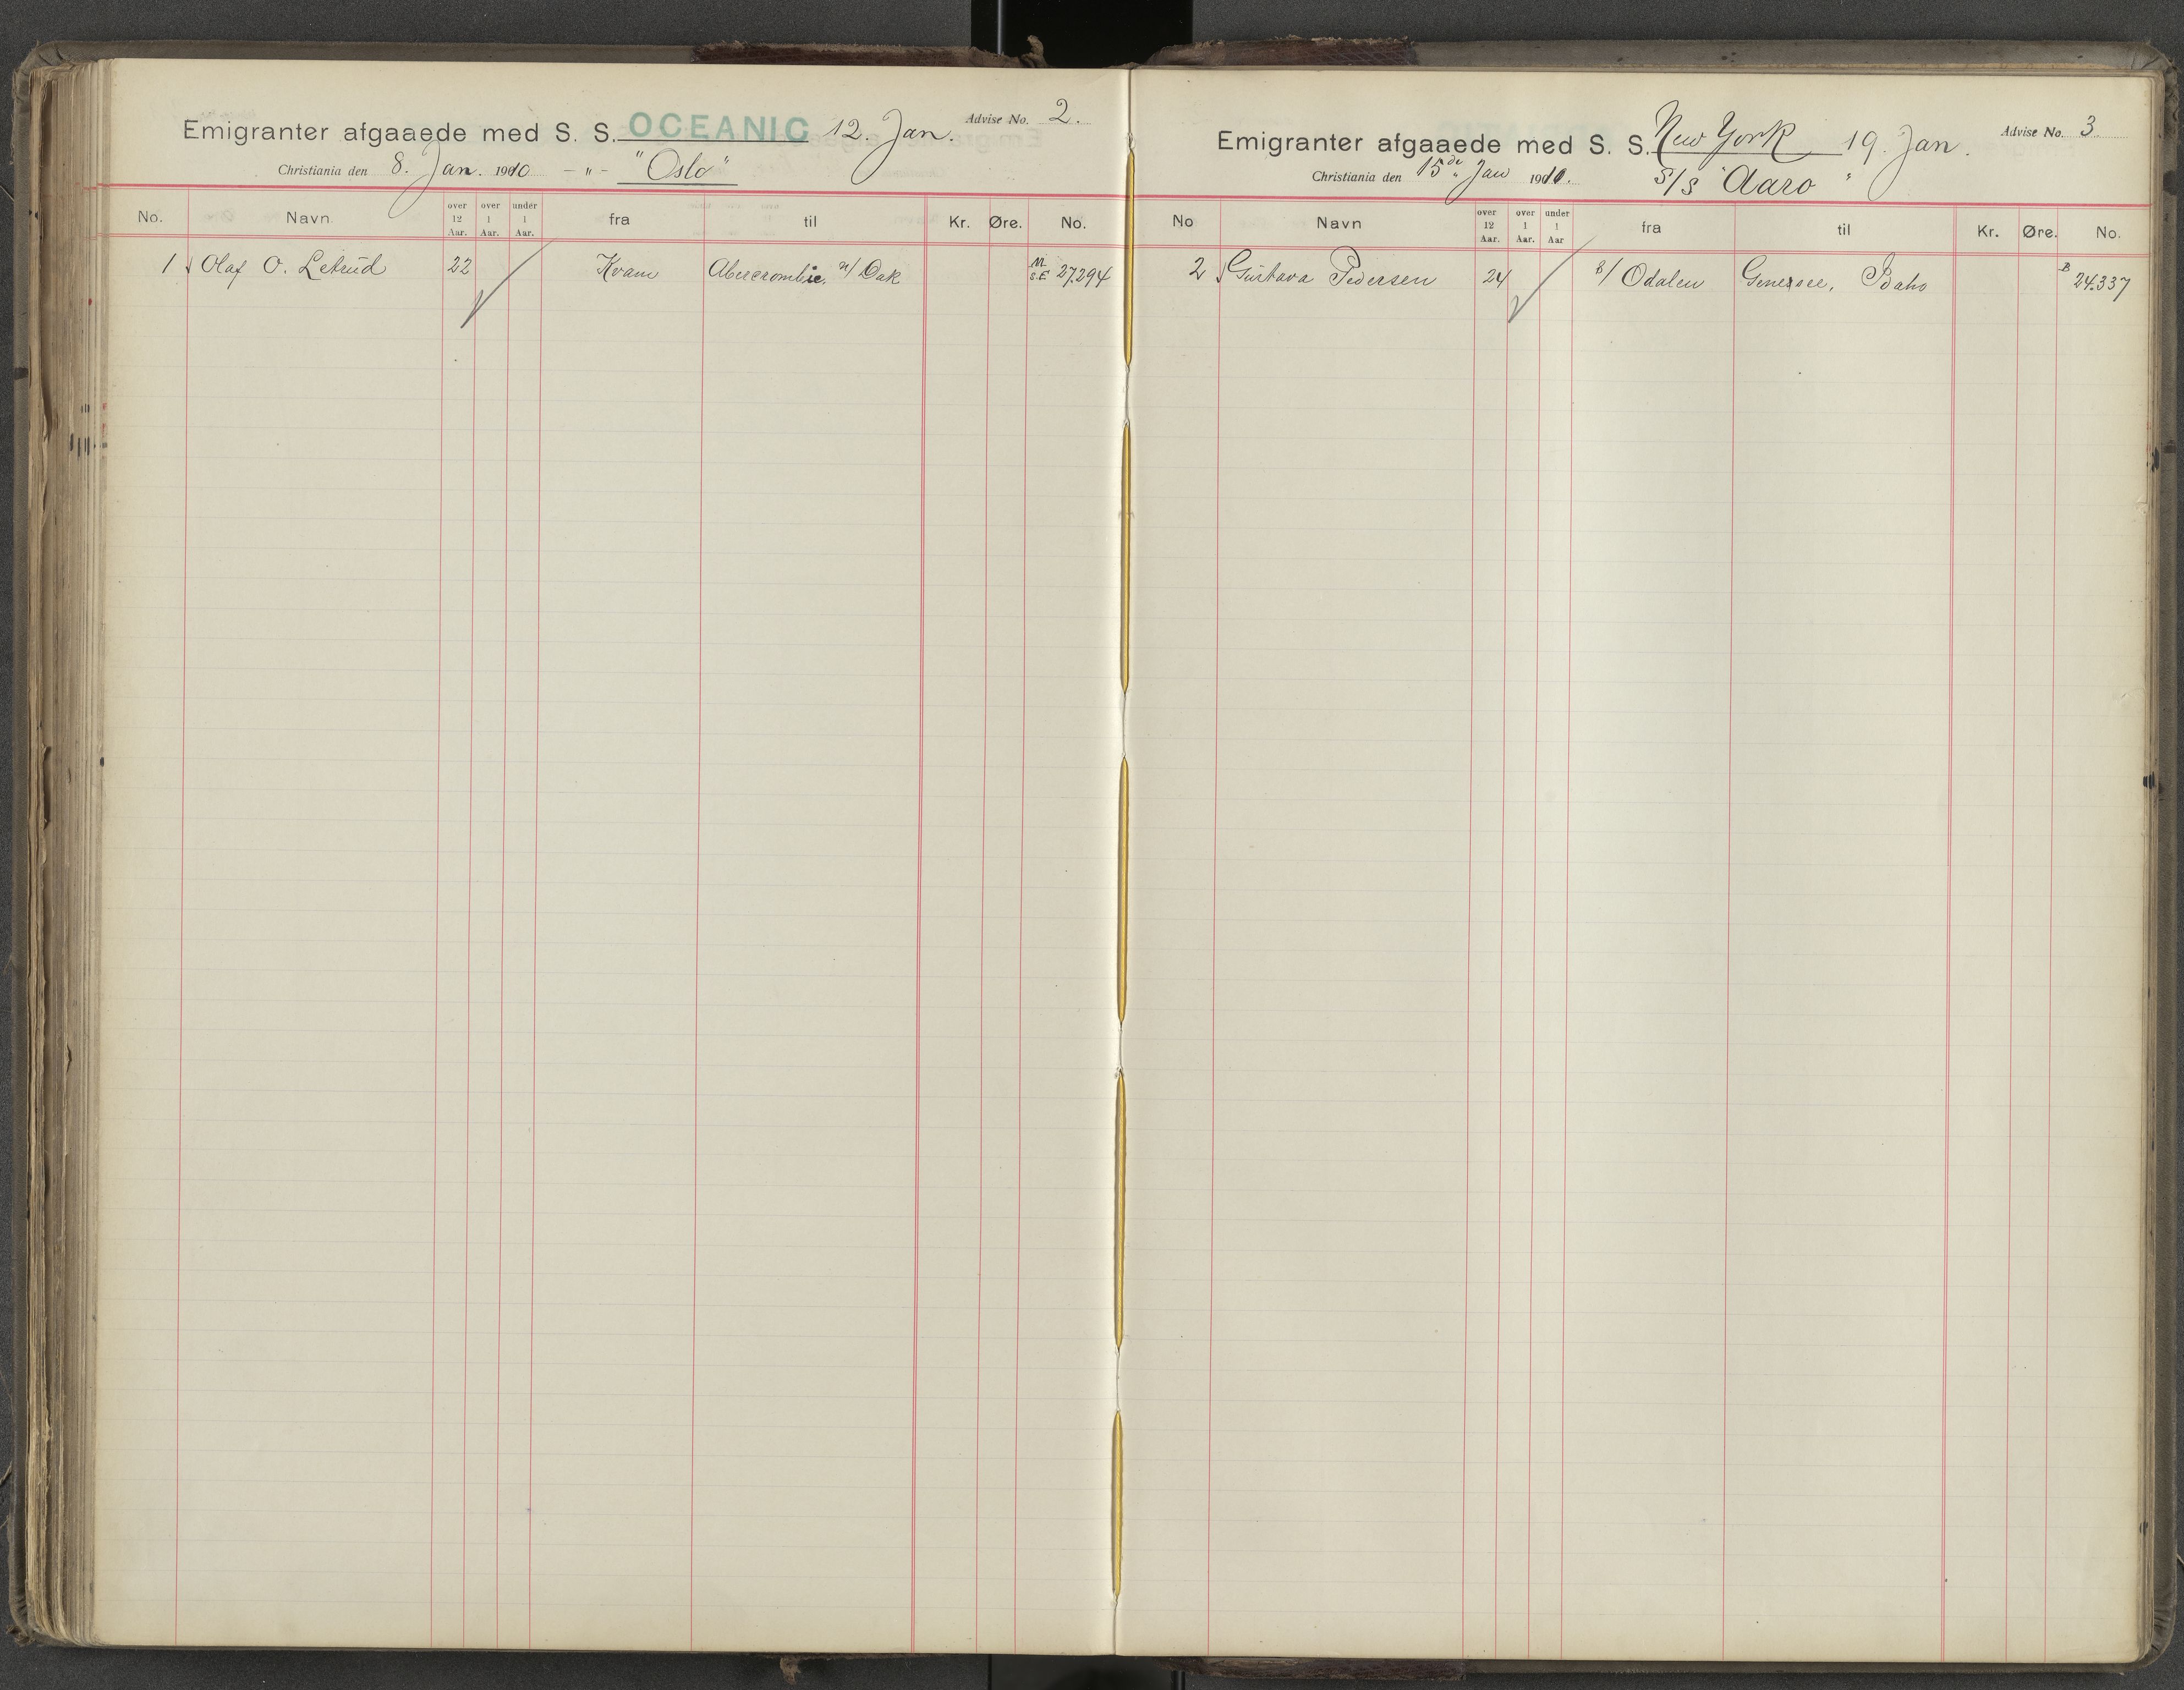 Emigranter afgaaede med S. S. OCEANIC 12. Jan. Advise No. 2.
Christiania den 8. Jan. 1910 - " - "Oslo"
No. Navn. over 12 Aar. over 1 Aar. under 1 Aar. fra til Kr. Øre. No.
1 Olaf O. Letrud 22 Kvam Abercrombie, N/ Dak M S.E 27294
Emigranter afgaaede med S. S. New York 19. Jan. Advise No. 3
Christiania den 15de Jan 1910. S/S "Aaro"
No Navn over 12 Aar. over 1 Aar. under 1 Aar fra til Kr. Øre. No.
2 Gustava Pedersen 24 S/ Odalen Genesee, Idaho B 24337